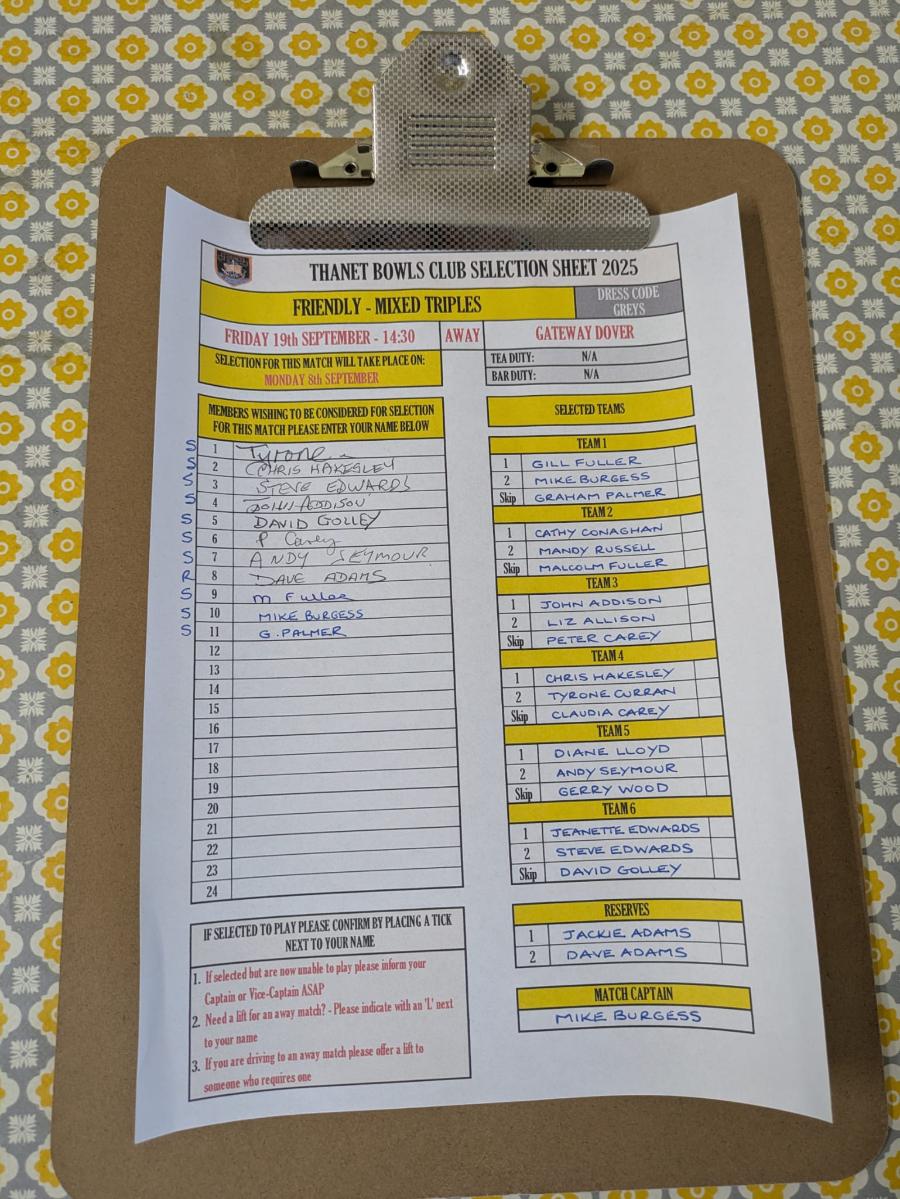 THANET BOWLS CLUB SELECTION SHEET 2025
FRIENDLY - MIXED TRIPLES
DRESS CODE
GREYS
FRIDAY 19th SEPTEMBER - 14:30
AWAY
GATEWAY DOVER
SELECTION FOR THIS MATCH WILL TAKE PLACE ON:
MONDAY 8th SEPTEMBER
TEA DUTY: N/A
BAR DUTY: N/A
MEMBERS WISHING TO BE CONSIDERED FOR SELECTION
FOR THIS MATCH PLEASE ENTER YOUR NAME BELOW
S 1 Tyrone
S 2 CHRIS HAKESLEY
S 3 STEVE EDWARDS
S 4 JOHN ADDISON
S 5 DAVID GOLLEY
S 6 P Carey
S 7 ANDY SEYMOUR
R 8 DAVE ADAMS
S 9 M Fuller
S 10 MIKE BURGESS
S 11 G. PALMER
12
13
14
15
16
17
18
19
20
21
22
23
24
IF SELECTED TO PLAY PLEASE CONFIRM BY PLACING A TICK
NEXT TO YOUR NAME
1. If selected but are now unable to play please inform your
Captain or Vice-Captain ASAP
2. Need a lift for an away match? - Please indicate with an 'L' next
to your name
3. If you are driving to an away match please offer a lift to
someone who requires one
SELECTED TEAMS
TEAM 1
1 GILL FULLER
2 MIKE BURGESS
Skip GRAHAM PALMER
TEAM 2
1 CATHY CONAGHAN
2 MANDY RUSSELL
Skip MALCOLM FULLER
TEAM 3
1 JOHN ADDISON
2 LIZ ALLISON
Skip PETER CAREY
TEAM 4
1 CHRIS HAKESLEY
2 TYRONE CURRAN
Skip CLAUDIA CAREY
TEAM 5
1 DIANE LLOYD
2 ANDY SEYMOUR
Skip GERRY WOOD
TEAM 6
1 JEANETTE EDWARDS
2 STEVE EDWARDS
Skip DAVID GOLLEY
RESERVES
1 JACKIE ADAMS
2 DAVE ADAMS
MATCH CAPTAIN
MIKE BURGESS